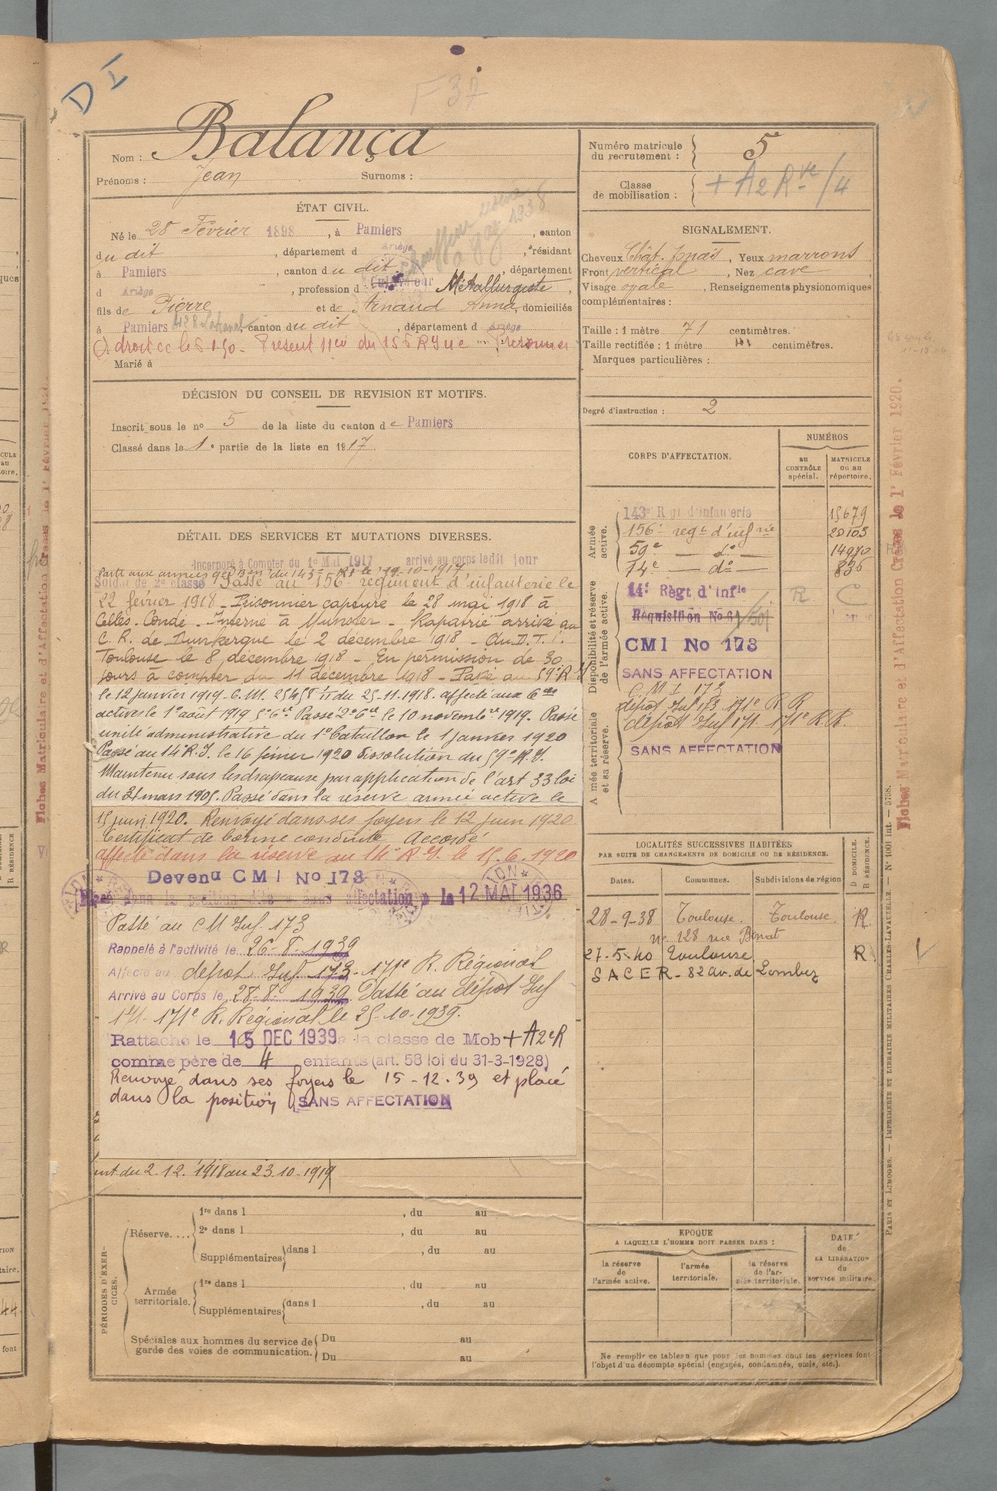 DI
F 37
Nom : Balança
Prénoms : Jean Surnoms :
ÉTAT CIVIL.
Né le 28 Février 1898, à Pamiers, canton
du dit, département d Ariège, résidant
à Pamiers, canton du dit, département
d Ariège, profession d Cultivateur Métallurgiste,
fils de Pierre et de Arnaud Anna, domiciliés
à Pamiers canton du dit, département d Ariège
Marié à
DÉCISION DU CONSEIL DE REVISION ET MOTIFS.
Inscrit sous le no 5 de la liste du canton de Pamiers
Classé dans la 1e partie de la liste en 1917
DÉTAIL DES SERVICES ET MUTATIONS DIVERSES.
Incorporé à Compter du 1er Mai 1917 arrivé au corps ledit jour
Soldat de 2e classe Passé au 156e régiment d'infanterie le
22 février 1918 - Prisonnier capturé le 28 mai 1918 à
Celles. Conde. Interné à Munster - Rapatrié arrivé au
C. R. de Dunkerque le 2 décembre 1918 - Au D. T. I.
Toulouse le 8 décembre 1918 - En permission de 30
jours à compter du 11 décembre 1918 - Passé au 59e R I
le 12 janvier 1919. C. M. du 25.11.1918. affecté aux
actives le 1er août 1919 Passé le 10 novembre 1919. Passé
unité administrative du 1er bataillon le 1 janvier 1920
Passé au 14e R. I. le 16 février 1920 dissolution du 59e R. I.
Maintenu sous les drapeaux par application de l'art 33 loi
du 21 mars 1905. Passé dans la réserve armée active le
15 juin 1920. Renvoyé dans ses foyers le 12 juin 1920
Certificat de bonne conduite Accordé
affecté dans la réserve au 14e R. I. le 15.6.1920
Devenu CMI No 173
affectation le 12 MAI 1936
Passé au CM Inf 173
Rappelé à l'activité le 26-8-1939
Affecté au dépôt Inf 173. 171e R. Régional
Arrivé au Corps le 28-8-1939. Passé au dépôt Inf
171. 171e R. Régional le 25.10.1939.
Rattaché le 15 DEC 1939 à la classe de Mob + A2eR
comme père de 4 enfants (art. 58 loi du 31-3-1928)
Renvoyé dans ses foyers le 15-12.39 et placé
dans la position SANS AFFECTATION
du 2.12.1918 au 23.10.1919
PÉRIODES D'EXERCICES.
Réserve....
1re dans l , du au
2e dans l , du au
Supplémentaires dans l , du au
Armée territoriale.
1re dans l , du au
Supplémentaires dans l , du au
Spéciales aux hommes du service de
garde des voies de communication.
Du au
Du au
Numéro matricule
du recrutement : 5
Classe
de mobilisation : + A2 Rve/4
SIGNALEMENT.
Cheveux Chât. foncés, Yeux marrons
Front vertical, Nez cave
Visage ovale, Renseignements physionomiques
complémentaires :
Taille : 1 mètre 71 centimètres.
Taille rectifiée : 1 mètre centimètres.
Marques particulières :
Degré d'instruction : 2
CORPS D'AFFECTATION.
NUMÉROS
AU CONTRÔLE spécial.
MATRICULE ou au répertoire.
Armée active.
143e Régt d'infanterie 15679
156e regt d'infrie 20103
59e — do —
74e — do — 836
Disponibilité et réserve de l'armée active.
14e Règt d'Infie R C
Réquisition No
CMI No 173
SANS AFFECTATION
C M I 173
dépôt Inf 173 171e R R
dépôt Inf 171. 171e R R.
Armée territoriale et sa réserve.
SANS AFFECTATION
LOCALITÉS SUCCESSIVES HABITÉES
PAR SUITE DE CHANGEMENTS DE DOMICILE OU DE RÉSIDENCE.
Dates. Communes. Subdivisions de région
D DOMICILE.
R RÉSIDENCE.
28-9-38 Toulouse. Toulouse R
no 128 rue
27-5-40 Toulouse R
SACER - 82 av. de Lombez
EPOQUE
A LAQUELLE L'HOMME DOIT PASSER DANS :
DATE
de
LA LIBÉRATION
du
service militaire.
la réserve
de
l'armée active.
l'armée
territoriale.
la réserve
de l'ar-
mée territoriale.
Ne remplir ce tableau que pour les hommes dont les services font
l'objet d'un décompte spécial (engagés, condamnés, omis, etc.).
Fiches Matriculaire et d'Affectation Créées le 1er Février 1920.
PARIS ET LIMOGES. — IMPRIMERIE ET LIBRAIRIE MILITAIRES CHARLES-LAVAUZELLE.